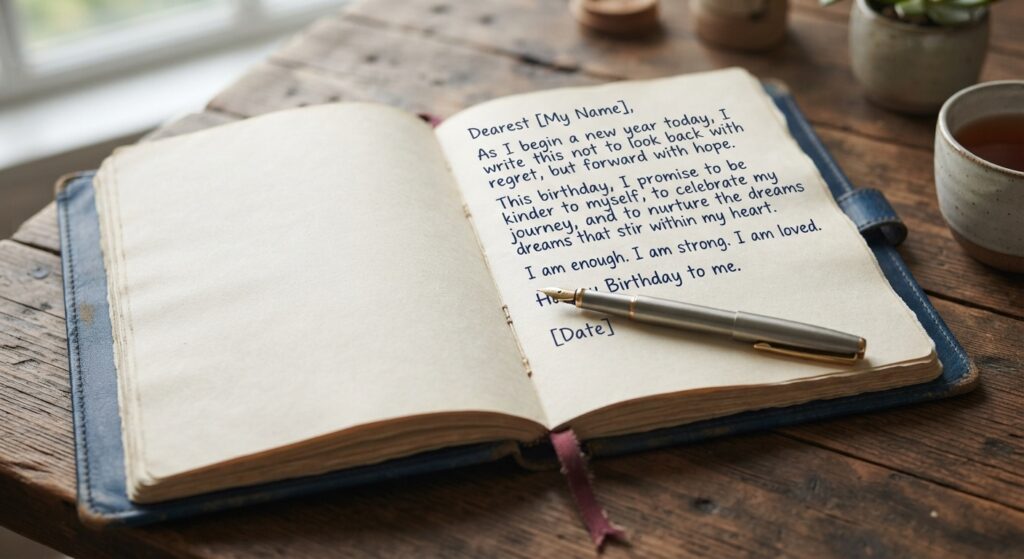 Dearest [My Name],
As I begin a new year today, I
write this not to look back with
regret, but forward with hope.
This birthday, I promise to be
kinder to myself, to celebrate my
journey, and to nurture the dreams
dreams that stir within my heart.
I am enough. I am strong. I am loved.
Birthday to me.
[Date]